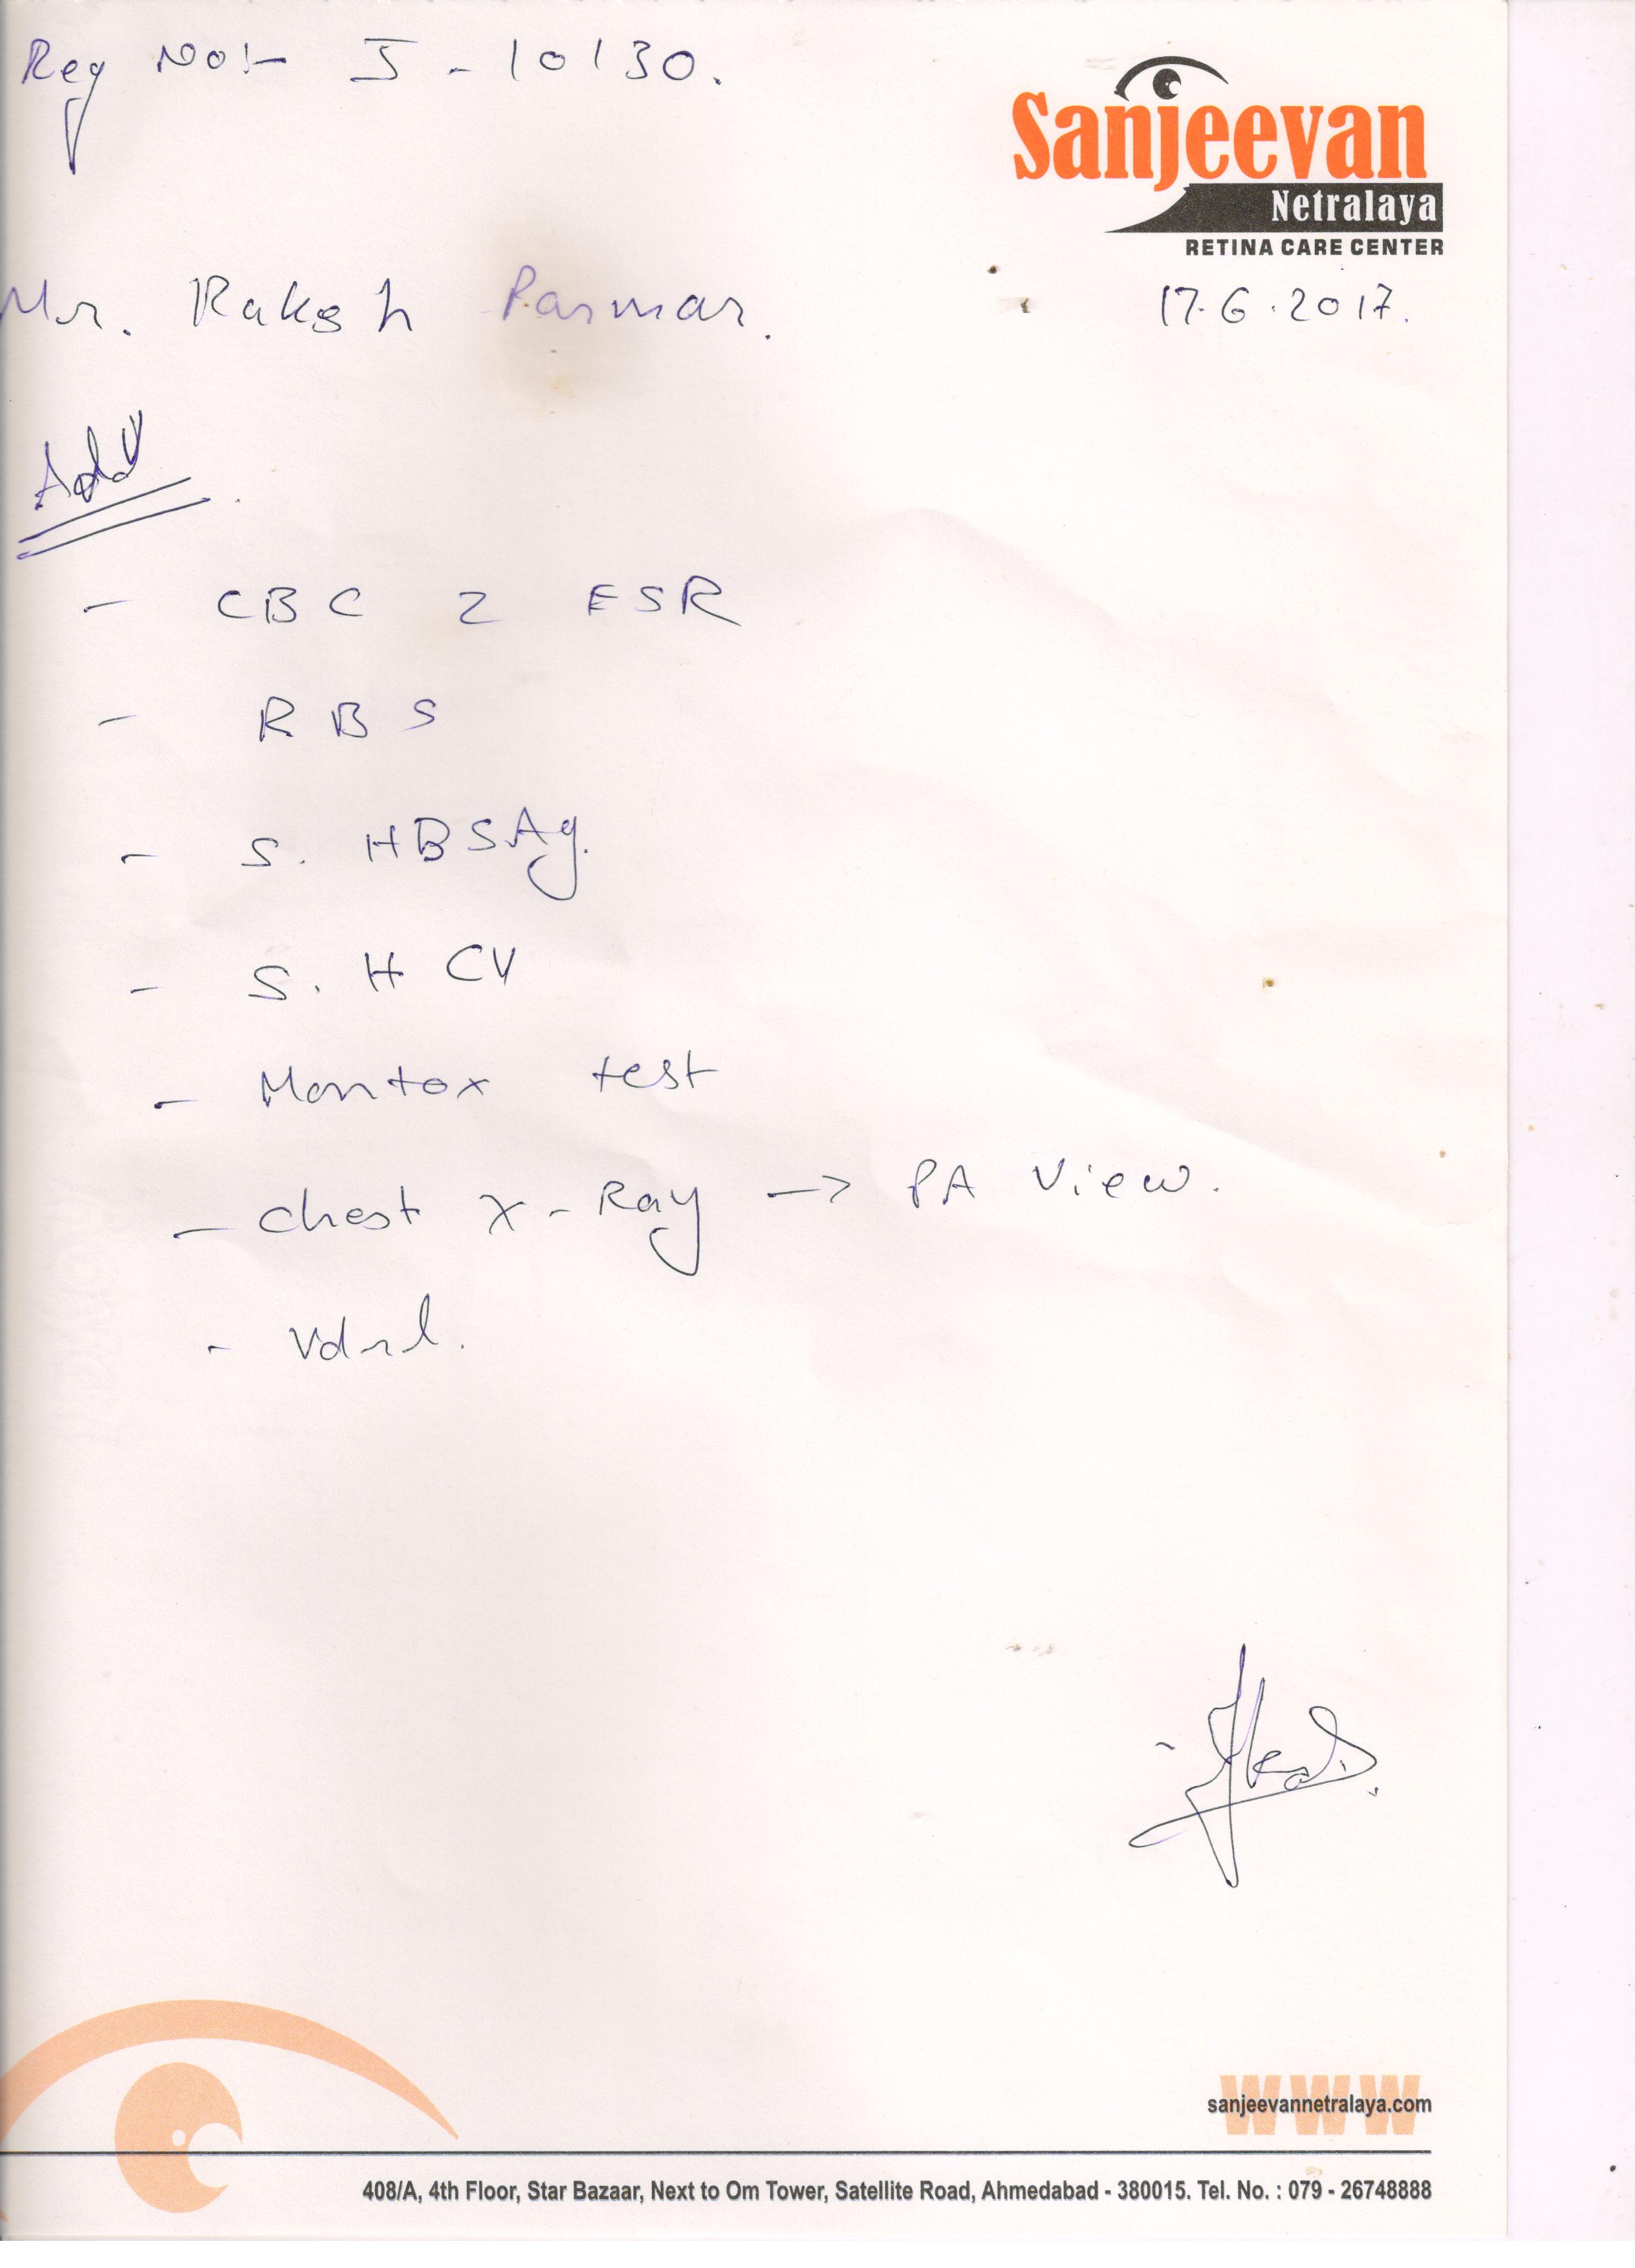 Reg No:- J - 10130.
Sanjeevan
Netralaya
RETINA CARE CENTER
Mr. Rakesh Parmar.
17.6.2017.
Adv
- CBC 2 ESR
- RBS
- S. HBSAg.
- S. HCV
- Montox test
- Chest X-Ray -> PA View.
- Vdrl.
WWW
sanjeevannetralaya.com
408/A, 4th Floor, Star Bazaar, Next to Om Tower, Satellite Road, Ahmedabad - 380015. Tel. No. : 079 - 26748888